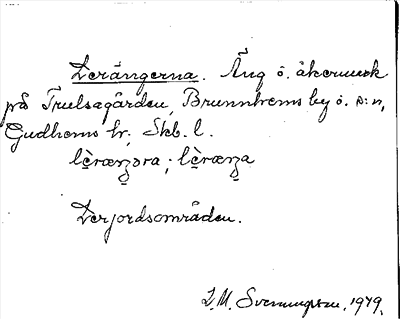 Lerängerna. Äng o. åkermark
på Trulsagården, Brunnhems by o. s:n,
Gudhems hr, Skb. l.
lèrænʒɷra; lèrænʒa
Lerjordsområden.
I. M. Svenungsson, 1979.